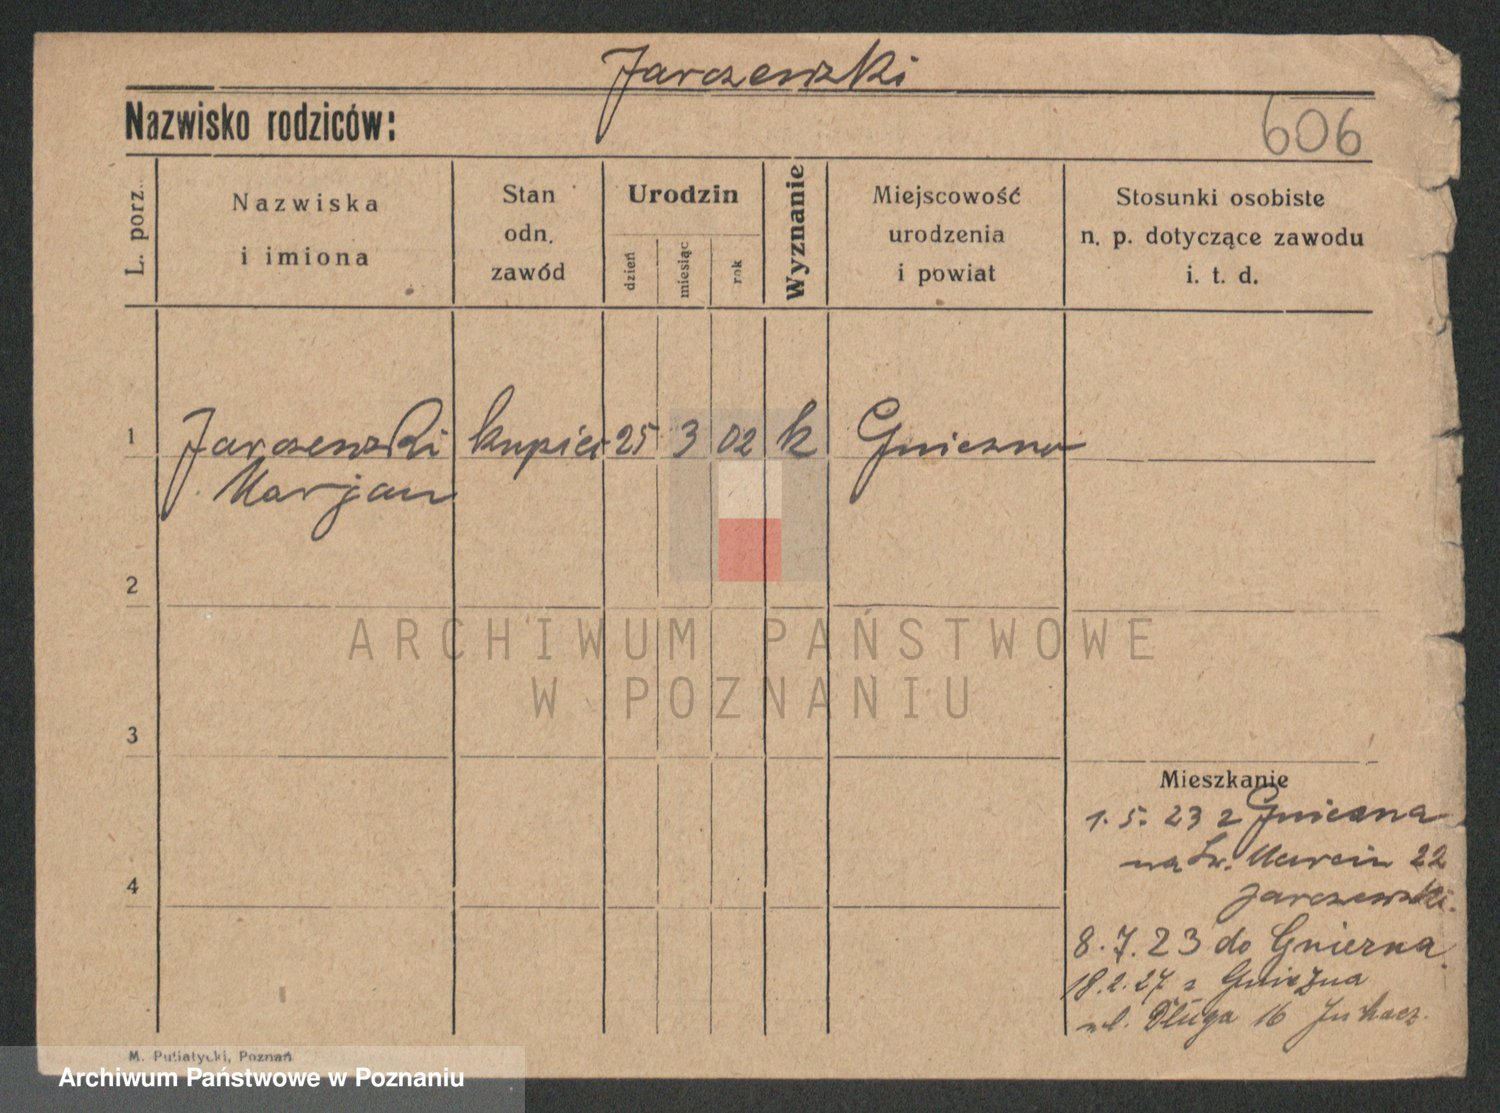 Jarczewski
Nazwisko rodziców:
606
L. porz.
Nazwiska
i imiona
Stan
odn.
zawód
Urodzin
dzień
miesiąc
rok
Wyznanie
Miejscowość
urodzenia
i powiat
Stosunki osobiste
n. p. dotyczące zawodu
i. t. d.
1 Jarczewski kupiec 25 3 02 k Gniezno
Marjan
2
ARCHIWUM PAŃSTWOWE
W POZNANIU
3
Mieszkanie
1. 5. 23 z Gniezna
na Św. Marcin 22
Jarczewski.
4
8. 7. 23 do Gniezna.
18.2.27 z Gniezna
ul. Długa 16
M. Putiatycki, Poznań
Archiwum Państwowe w Poznaniu